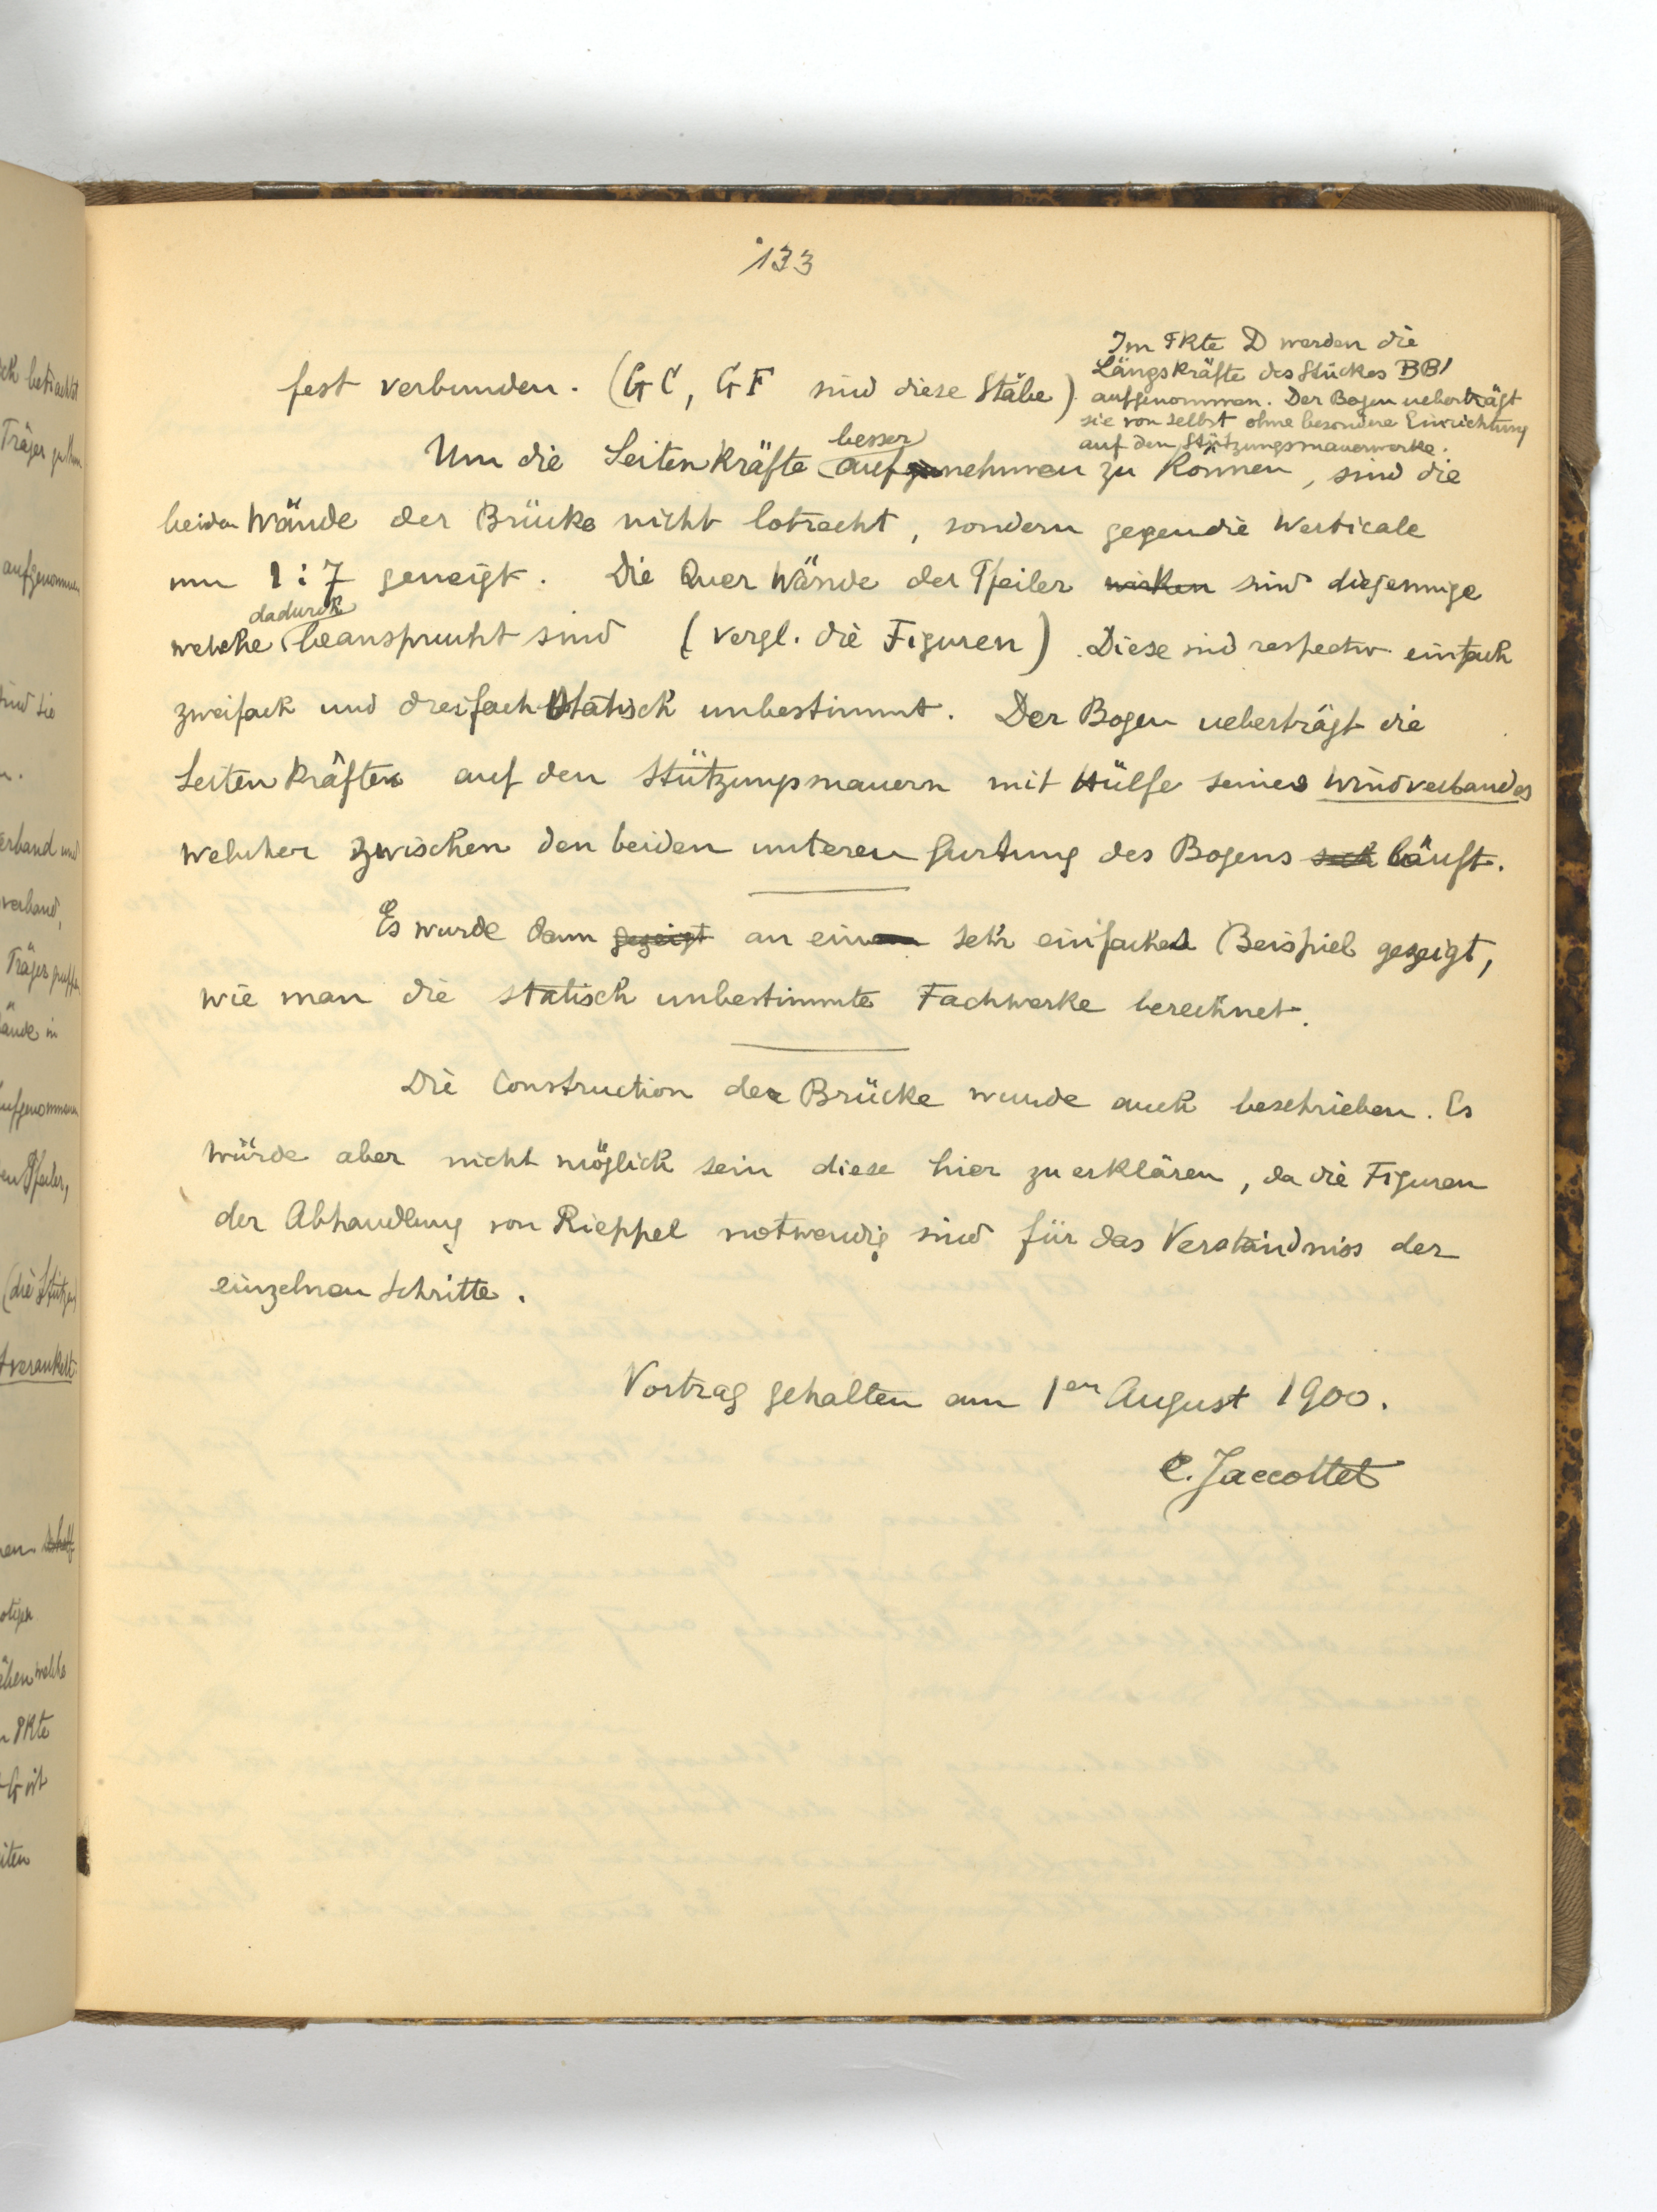 133
fest verbunden. (GC, GF sind diese Stäbe).
Im Pkte D werden die
Längskräfte des Stückes BB'
aufgenommen. Der Bogen ueberträgt
sie von selbst ohne besondere Einrichtung
auf den Stützungsmauerwerke.
besser
Um die Seitenkräfte aufzunehmen zu können, sind die
beiden Wände der Brücke nicht lotrecht, sondern gegen die Verticale
um 1:7 geneigt. Die Querwände der Pfeiler wirken sind diejenige
dadurch
welche beansprucht sind (vergl. die Figuren). Diese sind respectiv einfach
zweifach und dreifach statisch unbestimmt. Der Bogen ueberträgt die
Seitenkräften auf den Stützungsmauern mit Hülfe seines Windverbandes
welcher zwischen den beiden unteren Gurtung des Bogens sich läuft.
Es wurde dann gezeigt an ein sehr einfaches Beispiel gezeigt,
wie man die statisch unbestimmte Fachwerke berechnet.
Die Construction der Brücke wurde auch beschrieben. Es
würde aber nicht möglich sein diese hier zu erklären, da die Figuren
der Abhandlung von Rieppel notwendig sind für das Verständniss der
einzelnen Schritte.
Vortrag gehalten am 1en August 1900.
C. Jaccottet